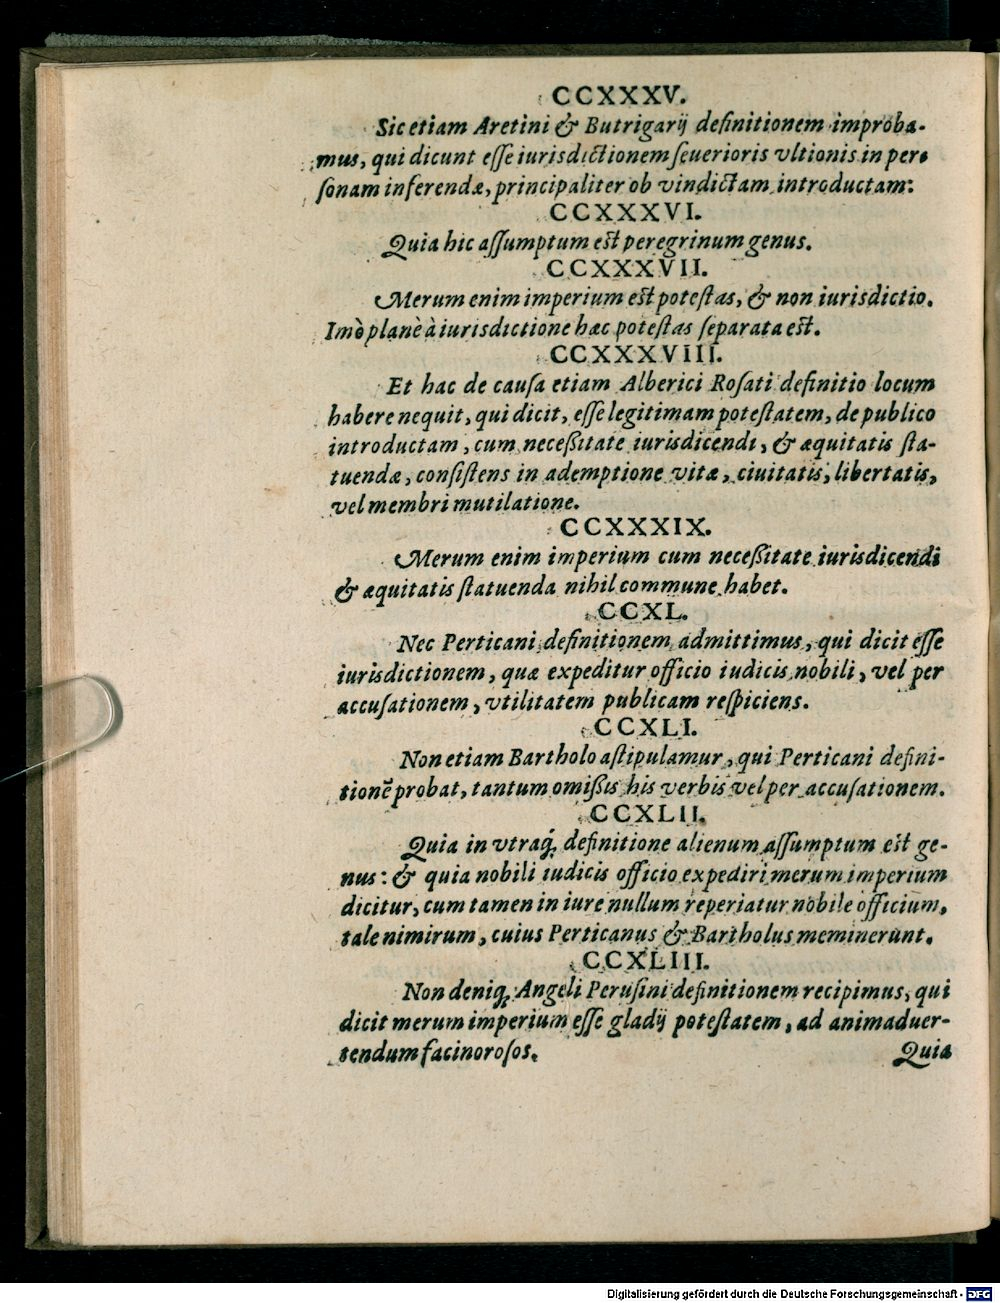 CCXXXV.
Sic etiam Aretini & Butrigarij definitionem improba-
mus, qui dicunt eſſe iurisdictionem ſeuerioris vltionis in per-
ſonam inferendæ, principaliter ob vindictam introductam:
CCXXXVI.
Quia hic aſſumptum est peregrinum genus.
CCXXXVII.
Merum enim imperium est poteſtas, & non iurisdictio.
Imò planè à iurisdictione hæc poteſtas ſeparata est.
CCXXXVIII.
Et hac de cauſa etiam Alberici Roſati definitio locum
habere nequit, qui dicit, eſſe legitimam poteſtatem, de publico
introductam, cum neceßitate iurisdicendi, & æquitatis ſta-
tuendæ, conſiſtens in ademptione vitæ, ciuitatis, libertatis,
vel membri mutilatione.
CCXXXIX.
Merum enim imperium cum neceßitate iurisdicendi
& æquitatis ſtatuenda nihil commune habet.
CCXL.
Nec Perticani definitionem admittimus, qui dicit eſſe
iurisdictionem, quæ expeditur officio iudicis nobili, vel per
accuſationem, vtilitatem publicam reſpiciens.
CCXLI.
Non etiam Bartholo aſtipulamur, qui Perticani defini-
tionẽ probat, tantum omißis his verbis vel per accuſationem.
CCXLII.
Quia in vtraq́; definitione alienum aſſumptum est ge-
nus: & quia nobili iudicis officio expediri merum imperium
dicitur, cum tamen in iure nullum reperiatur nobile officium,
tale nimirum, cuius Perticanus & Bartholus meminerunt.
CCXLIII.
Non deniq; Angeli Peruſini definitionem recipimus, qui
dicit merum imperium eſſe gladij poteſtatem, ad animaduer-
tendum facinoroſos.
Quia
Digitalisierung gefördert durch die Deutsche Forschungsgemeinschaft - DFG